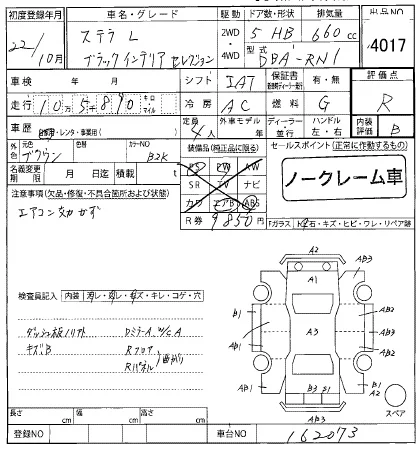 初度登録年月 車名・グレード 駆動 ドア数・形状 排気量 出品NO
22/10月 ステラ L 2WD 4WD 5 HB 660cc 4017
ブラックインテリアセレクション 型式 DBA-RN1
車検 年 月 シフト IAT 保証書 有・無 評価点
走行 10万5千890 キロ マイル 冷房 AC 燃料 G R
車歴 自家用・レンタ・事業用( ) 定員 4人 外車モデル 年 ディーラー 並行 ハンドル 左・右 内装評価 B
外色 元色 ブラウン 色替 カラーNO B2K 装備品(純正品に限る) セールスポイント(正常に作動するもの)
名義変更期限 月 日迄 積載 t PS PW AW
注意事項(欠品・修復・不具合箇所および状態) SR TV ナビ ノークレーム車
エアコン効かず カワ エアB ABS
R券 9850円 Fガラス 飛石・キズ・ヒビ・ワレ・リペア跡
検査員記入 内装 汚レ・破レ・キズ・キレ・コゲ・穴
ダッシュ板ノリアト DミラーA W/C A
キズB Rフロア
Rパネル 曲がり
A2
A1 AB3
B1 AB2
A3
AB1 AB2
B3 B1 B1 A2
AB3 スペア
長さ cm 幅 cm 高さ cm
登録NO 車台NO 162073